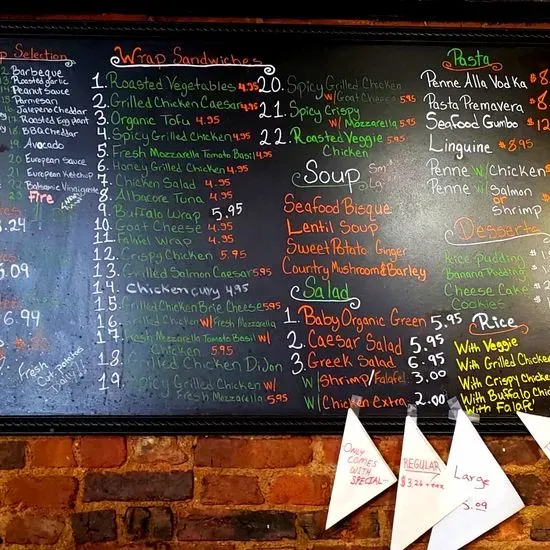 Selection
12 Barbeque
13 Roasted garlic
14 Peanut sauce
15 Parmesan
16 Jalapeno Cheddar
17 Roasted Egg plant
18 BBQ Cheddar
19 Avocado
20 European sauce
21 European Ketchup
22 Balsamic Vinaigrette
23 Fire
.24
.09
6.99
Fresh
Cut potatoes
Daily!!
Wrap Sandwiches
1. Roasted Vegetables 4.95
2. Grilled Chicken Caesar 4.95
3. Organic Tofu 4.95
4. Spicy Grilled Chicken 4.95
5. Fresh Mozzarella Tomato Basil 4.95
6. Honey Grilled Chicken 4.95
7. Chicken Salad 4.95
8. Albacore Tuna 4.95
9. Buffalo Wrap 5.95
10. Goat Cheese 4.95
11. Falafel Wrap 4.95
12. Crispy Chicken 5.95
13. Grilled Salmon Caesar 5.95
14. Chicken Curry 4.95
15. Grilled Chicken Brie Cheese 5.95
16. Grilled Chicken w/ Fresh Mozzarella
17. Fresh Mozzarella Tomato Basil w/
Chicken 5.95
18. Grilled Chicken Dijon
19. Spicy Grilled Chicken w/
Fresh Mozzarella 5.95
20. Spicy Grilled Chicken
w/Goat Cheese 5.95
21. Spicy Crispy
w/ Mozzarella 5.95
22. Roasted Veggie 5.95
Chicken
Soup Sm
Lg
Seafood Bisque
Lentil Soup
Sweet Potato Ginger
Country Mushroom & Barley
Salad
1. Baby Organic Green 5.95
2. Caesar Salad 5.95
3. Greek Salad 6.95
W/Shrimp/Falafel 3.00
W/Chicken Extra 2.00
Pasta
Penne Alla Vodka $8
Pasta Premavera $8
Seafood Gumbo $12
Linguine $8.95
Penne w/Chicken
Penne w/Salmon
or
shrimp
Desserts
Rice Pudding
Banana Pudding
Cheese Cake
Cookies
Rice
With Veggie
With Grilled Chicken
With Crispy Chicken
With Buffalo Chic
With Falafel
ONLY
COMES
WITH
SPECIAL
REGULAR
$3.26 + tax
Large
5.09